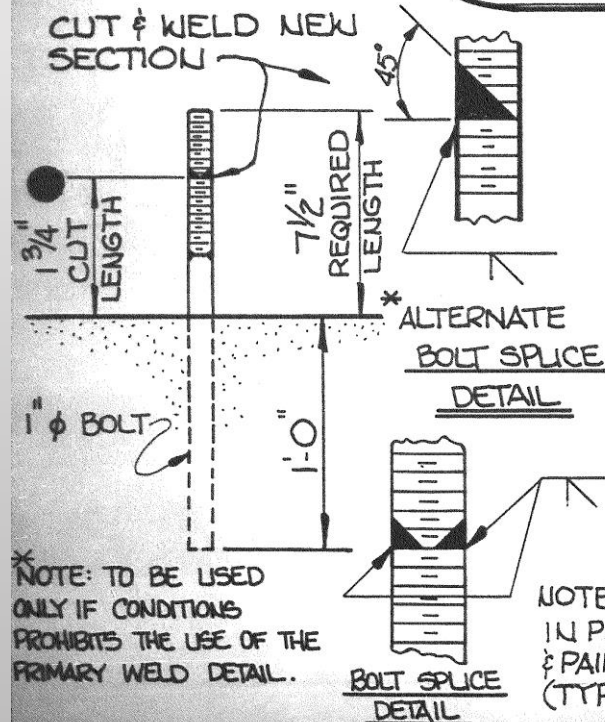 CUT & WELD NEW
SECTION
45°
1 3/4"
CUT
LENGTH
7 1/2"
REQUIRED
LENGTH
* ALTERNATE
BOLT SPLICE
DETAIL
1" ϕ BOLT
1'-0"
*
NOTE: TO BE USED
ONLY IF CONDITIONS
PROHIBITS THE USE OF THE
PRIMARY WELD DETAIL.
BOLT SPLICE
DETAIL
NOTE
IN P
& PAI
(TYP